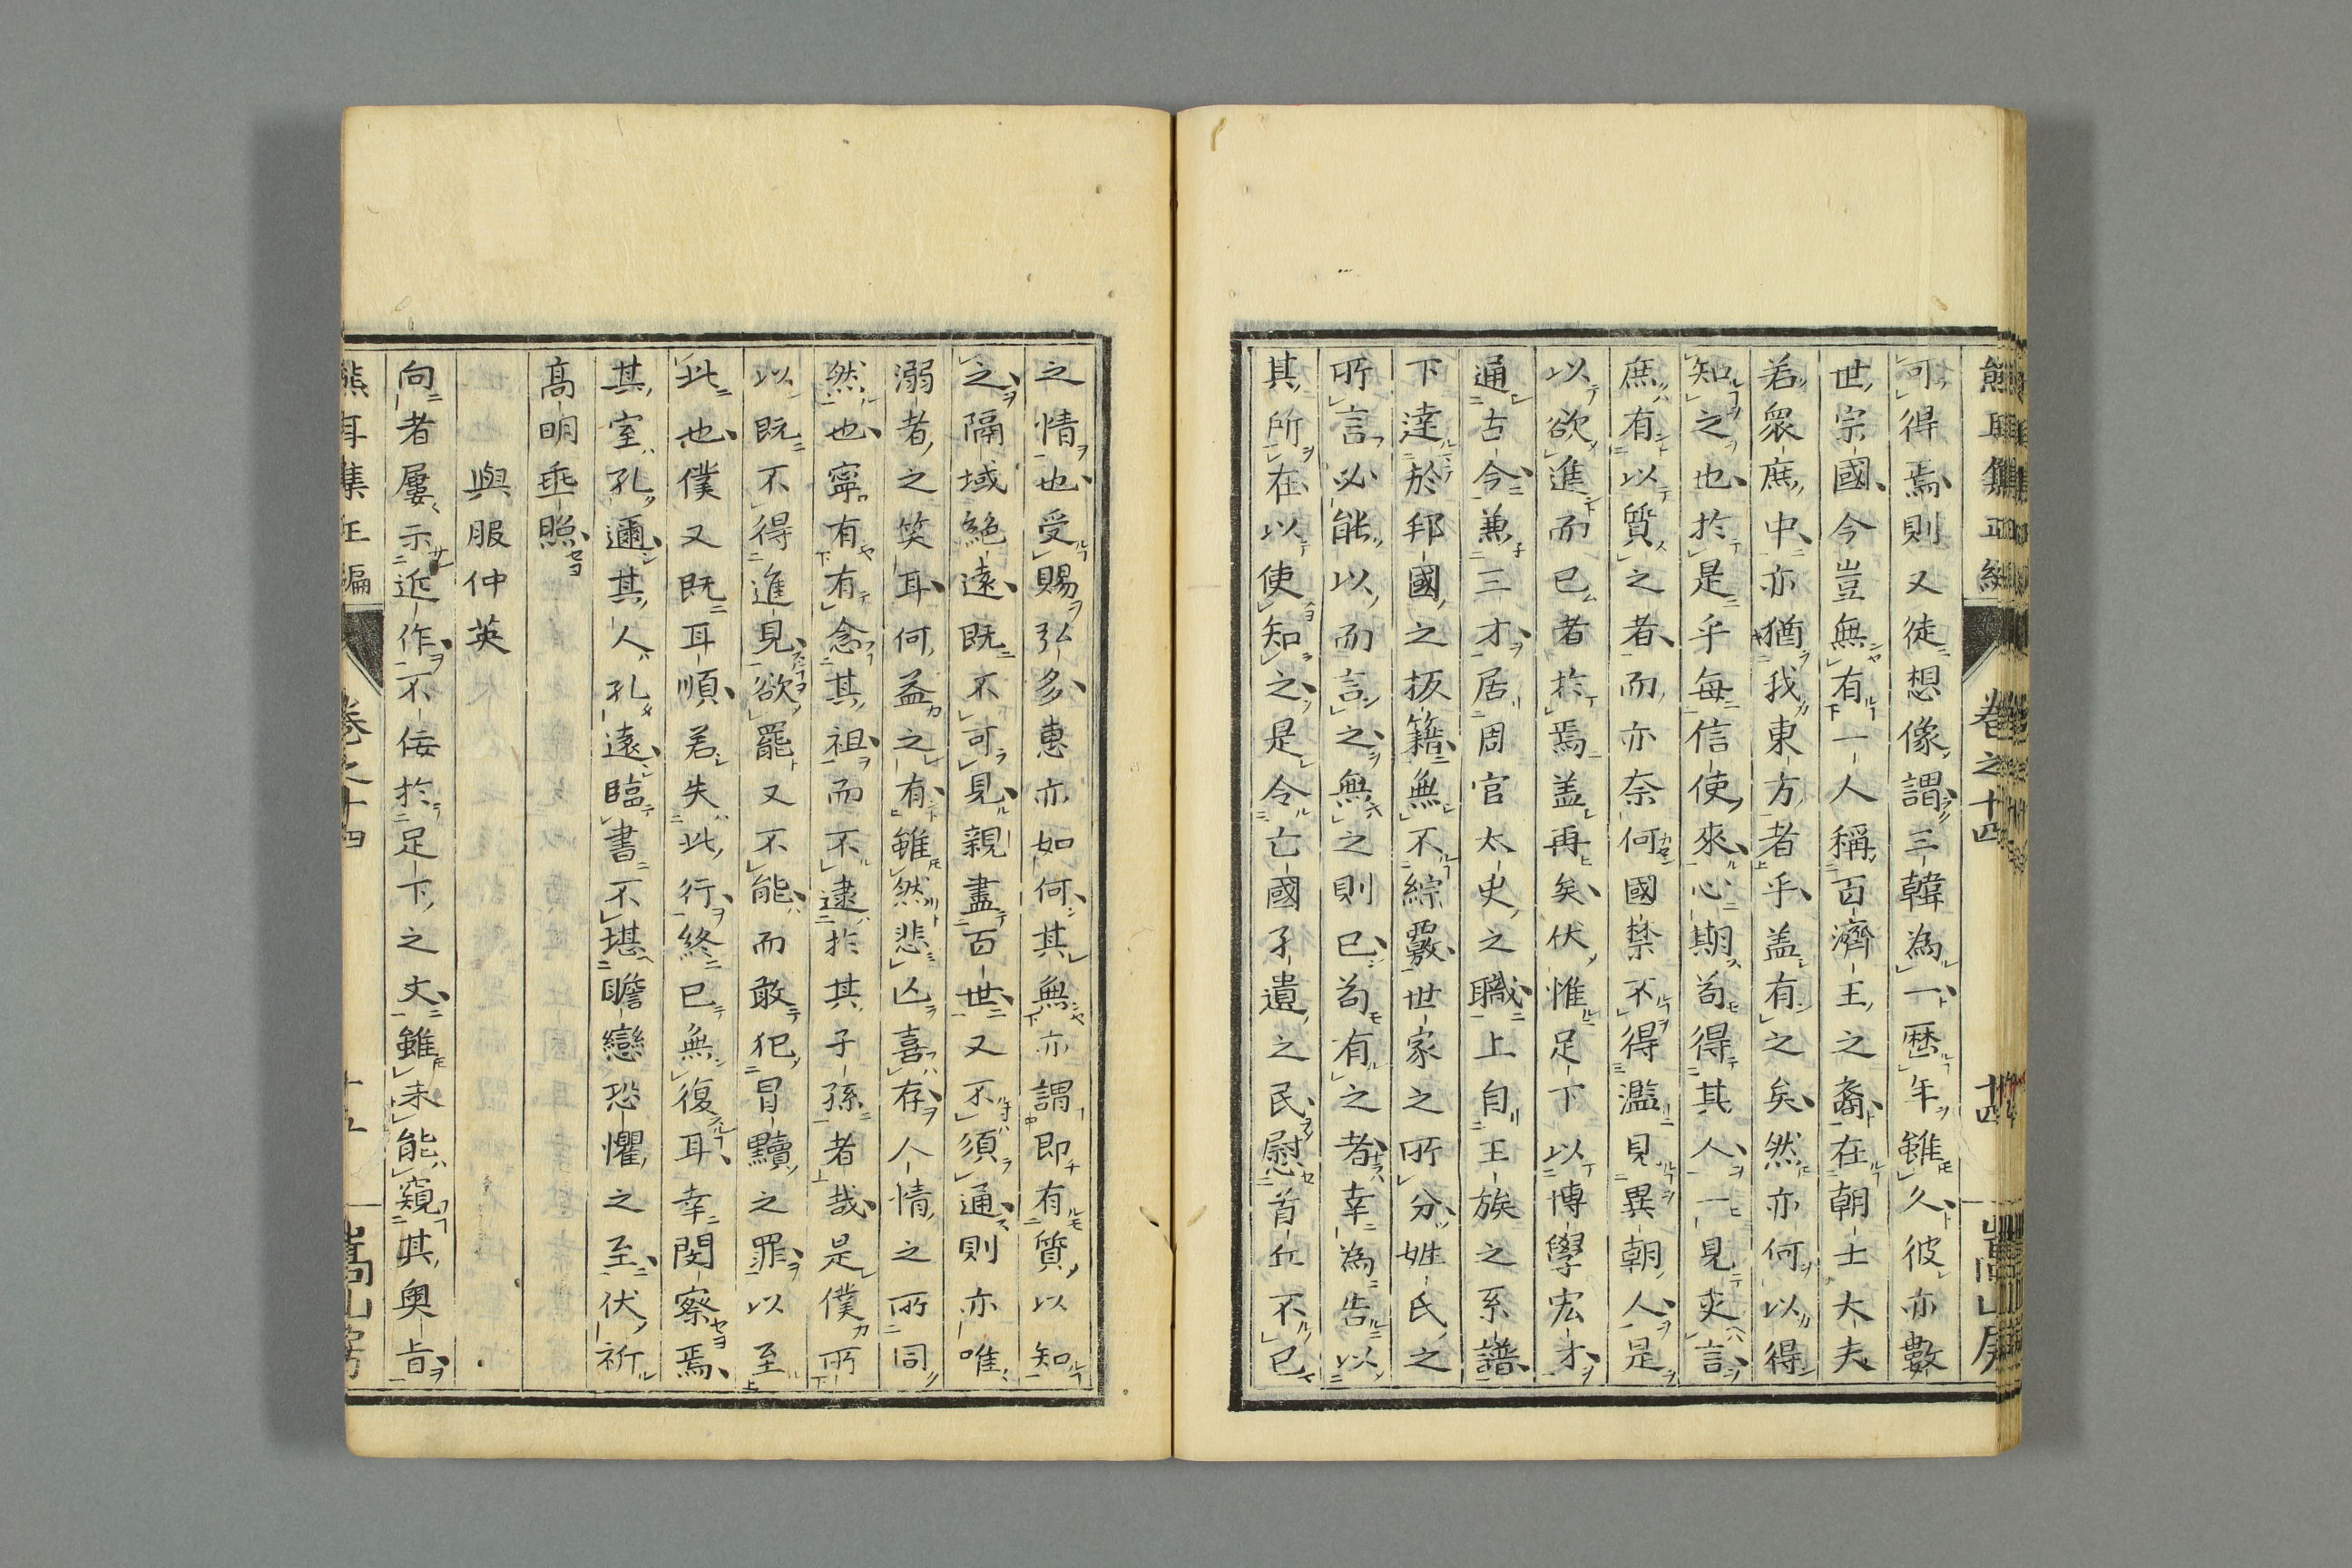 熊耳集正編 卷之十四 十四 嵩山房
可得焉則又徒想像謂三韓為一歷年雖久彼亦數
世宗國今豈無有一人稱百濟王之裔在朝士大夫
若衆庶中亦猶我東方者乎盖有之矣然亦何以得
知之也於是乎每信使來心期苟得其人一見交言
庶有以質之者而亦奈何國禁不得濫見異朝人是
以欲進而已者於焉盖再矣伏惟足下以博學宏才
通古今兼三才居周官太史之職上自王族之系譜
下逹於邦國之扳籍無不綜覈世家之所分姓氏之
所言必能以而言之無之則已苟有之者幸為告以
其所在以使知之是令亡國孑遺之民慰首丘不已
之情也受賜弘多惠亦如何其無亦謂即有質以知
之隔域絕遠既不可見親盡百世又不須通則亦唯
溺者之笑耳何益之有雖然悲亾喜存人情之所同
然也寧有有念其祖而不逮於其子孫者哉是僕所
以既不得進見欲罷又不能而敢犯冒黷之罪以至
此也僕又既耳順若失此行終已無復耳幸閔察焉
其室孔邇其人孔遠臨書不堪瞻戀恐懼之至伏祈
高明垂照
與服仲英
向者屢示近作不佞於足下之文雖未能窺其奧旨
熊耳集正編 卷之十四 十五 嵩山房